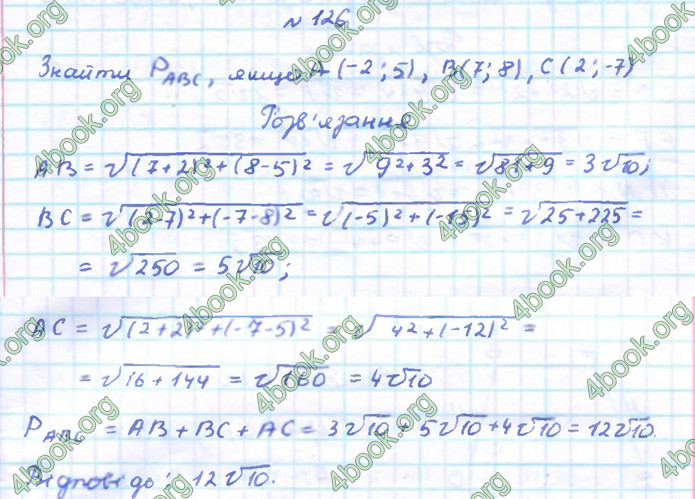 № 126
Знайти P_ABC, якщо A (-2; 5), B(7; 8), C (2; -7)
Розв'язання
AB = √((7+2)²+(8-5)²) = √(9²+3²) = √(81+9) = 3√10;
BC = √((2-7)²+(-7-8)²) = √((-5)²+(-15)²) = √(25+225) =
= √250 = 5√10;
AC = √((2+2)²+(-7-5)²) = √(4²+(-12)²) =
= √(16+144) = √160 = 4√10
P_ABC = AB + BC + AC = 3√10 + 5√10 + 4√10 = 12√10.
Відповідь: 12√10.
4book.org